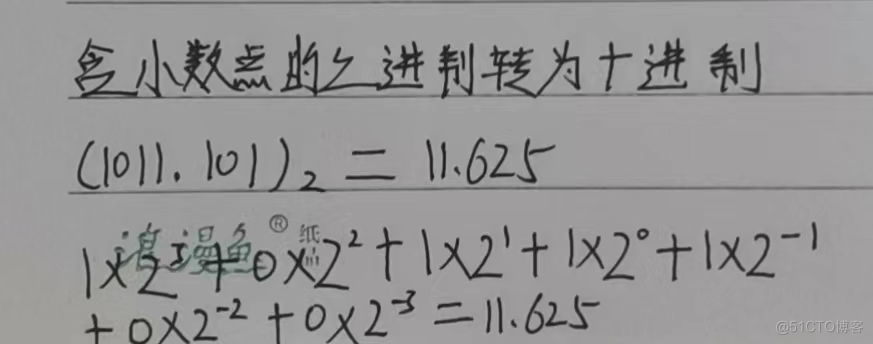 含小数点的二进制转为十进制
(1011.101)₂ = 11.625
浪漫鱼® 纸品
1×2³+0×2²+1×2¹+1×2⁰+1×2⁻¹
+0×2⁻²+0×2⁻³=11.625
@51CTO博客